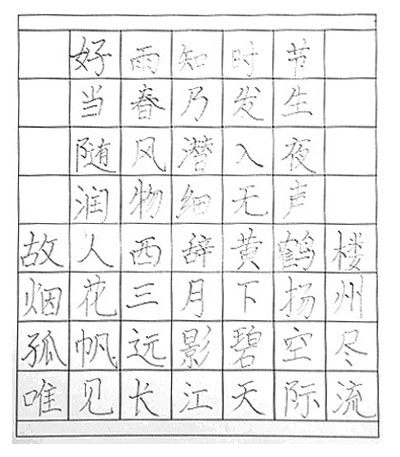 好雨知时节
当春乃发生
随风潜入夜
润物细无声
故人西辞黄鹤楼
烟花三月下扬州
孤帆远影碧空尽
唯见长江天际流